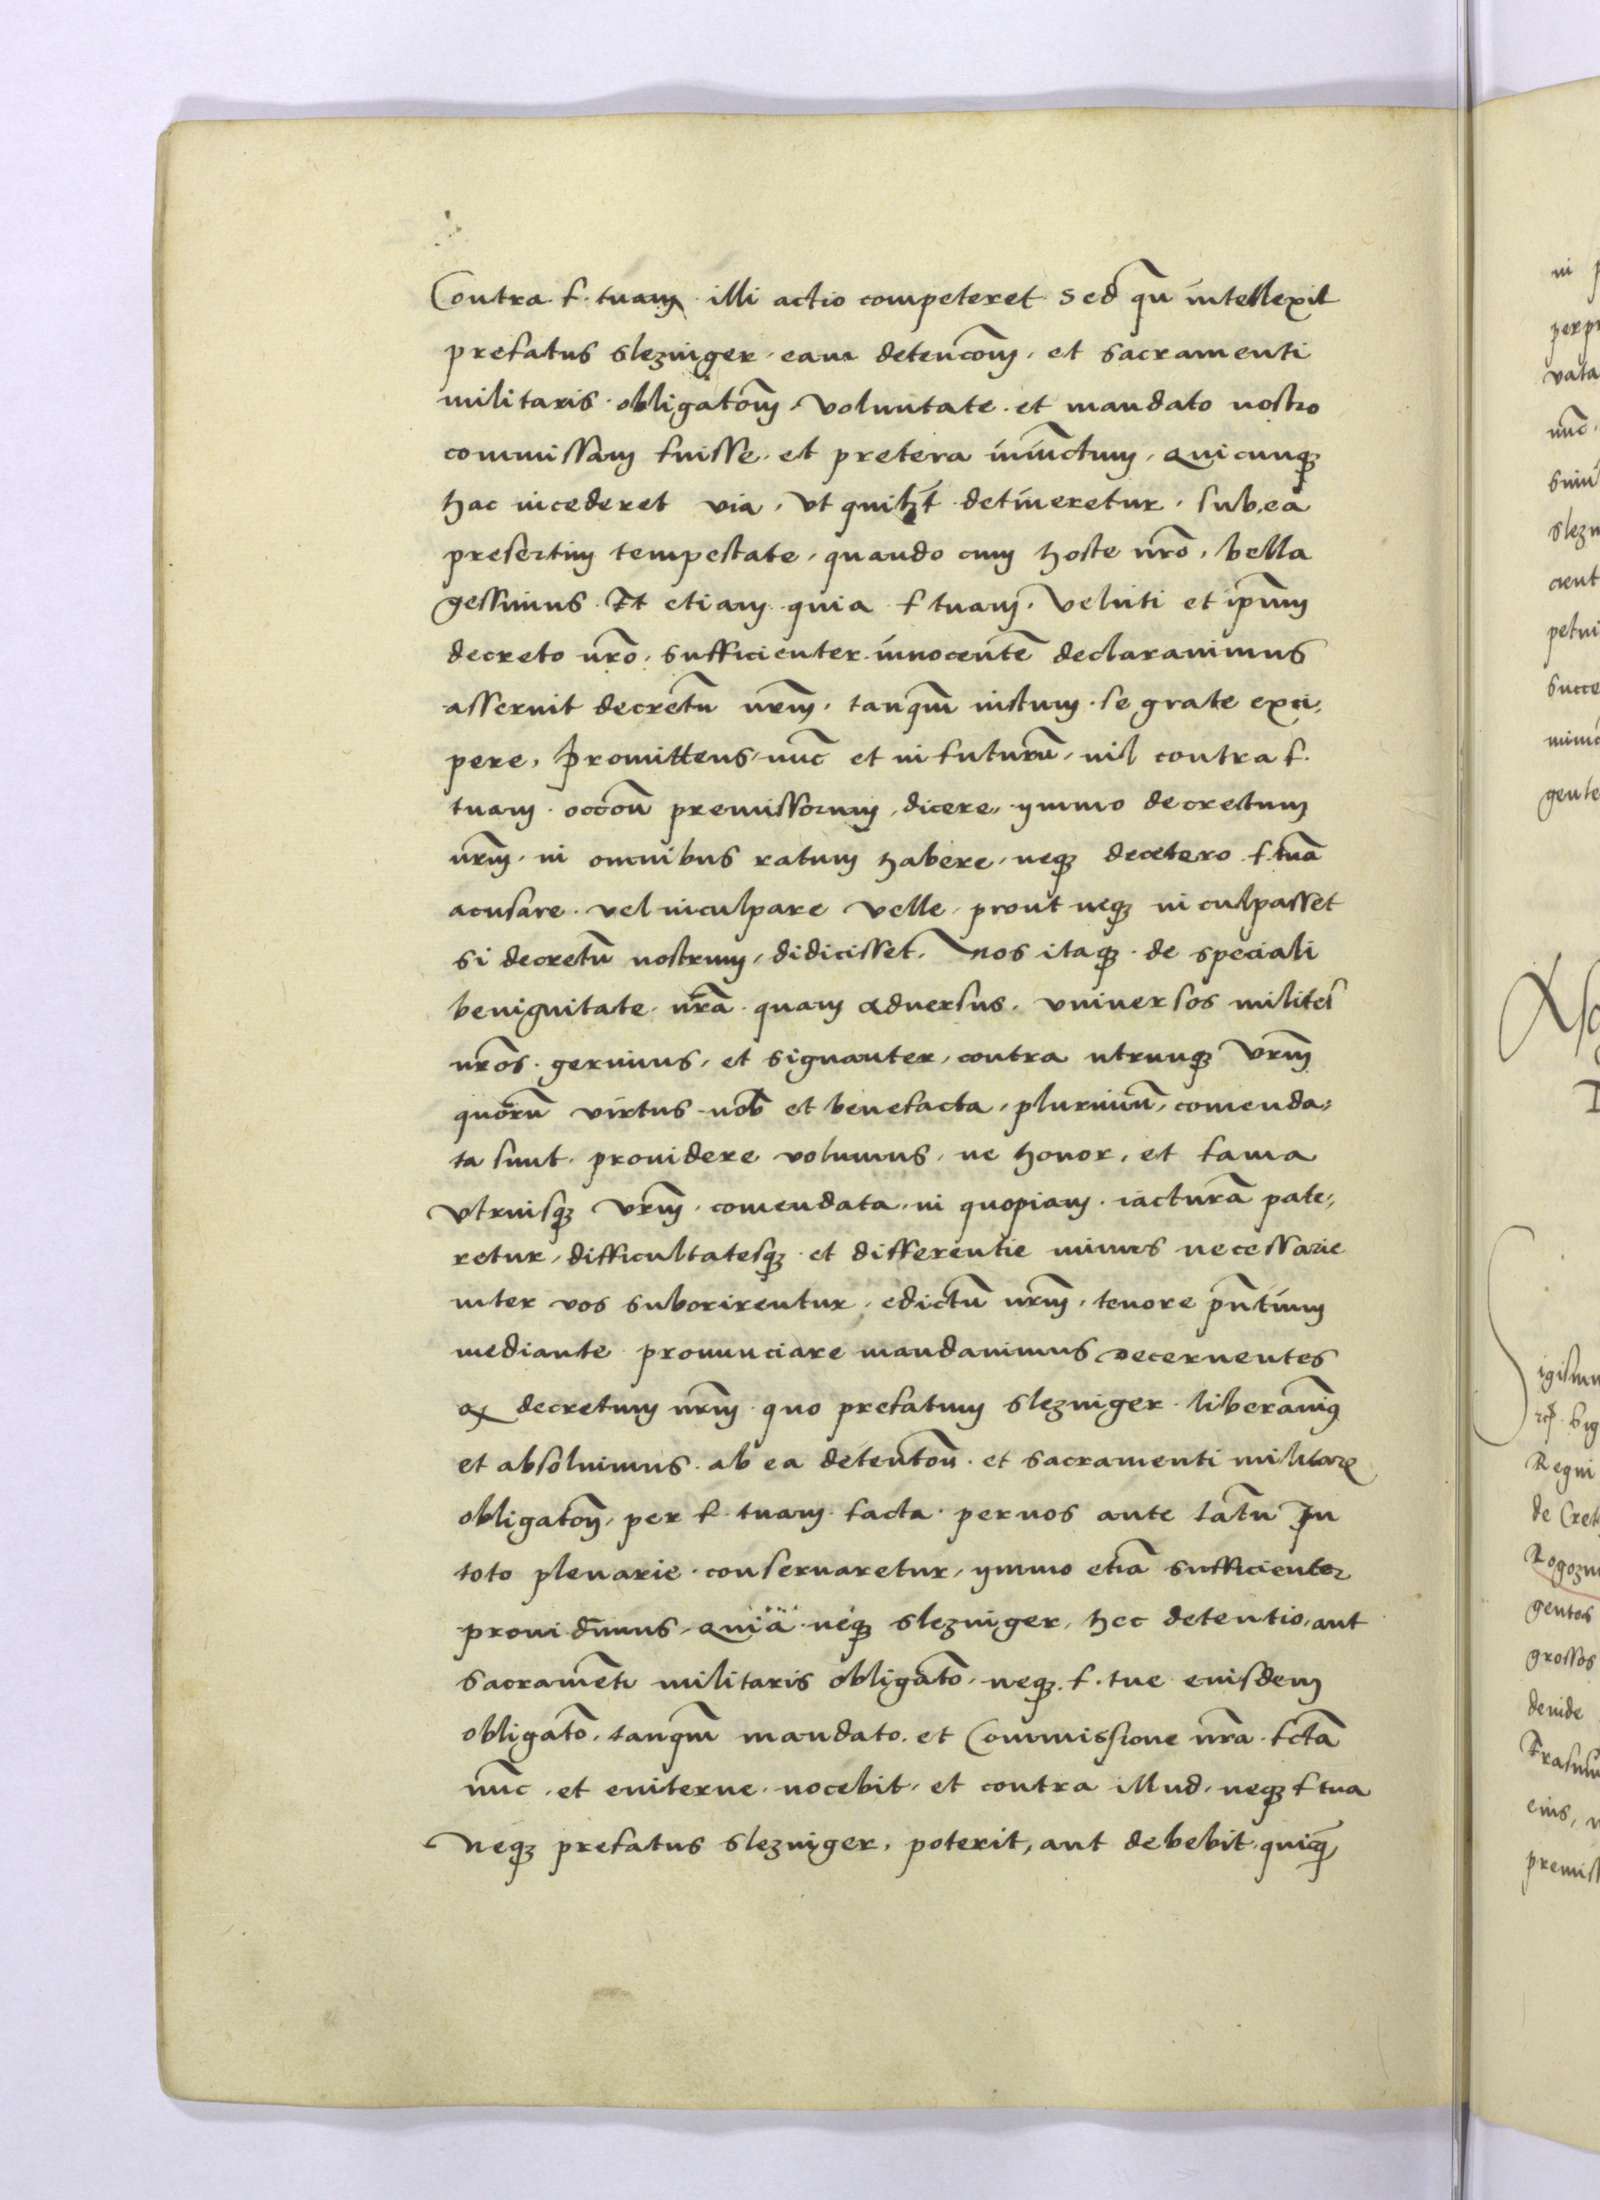 Contra f. tuam illi actio competeret sed qn̄ intellexit
prefatus slezniger. eam detenc̄oem. et sacramenti
militaris obligat̄oem. Voluntate et mandato nostro
commissam fuisse. et pretera iniūctum. Quicunqȝ
hac incederet via. Vt quilꝫt detineretur. sub ea
presertim tempestate, quando cum hoste nr̄o, bella
gessimus. Et etiam quia f tuam. Veluti et ip̄um
decreto nr̄o. sufficienter innocentē declarauimus
asseruit decretū nr̄m. tanq̄m iustum. se grate exci,
pere, Promittens, nūc et in futurū, nil contra f.
tuam occ̄oē premissorum, dicere, ymmo decrectum
nr̄m. in omnibus ratum habere. neqȝ decetero f. tuā
acusare. vel inculpare velle, prout neqȝ in culpasset
si decretū nostrum, didicisset, Nos itaqȝ de speciali
benignitate nr̄a quam aduersus. vniuersos milites
nr̄os. gerimus, et signanter, contra utrunqȝ vr̄m
quorū virtus nob̄ et benefacta, plurimū, comenda,
ta sunt. prouidere volumus, ne honor, et fama
Vtruisqȝ vr̄m. comendata. in quopiam. iacturā pate,
retur, difficultatesqȝ et differentie minus necessarie
inter vos suborirentur, edictū nr̄m, tenore pn̄tium
mediante pronunciare mandauimus Decernentes
ꝙ decretum nr̄m quo prefatum slezniger liberauimꝰ
et absoluimus. ab ea detent̄oē. et sacramenti militarꝭ
obligat̄oē, per f. tuam facta. per nos ante latū In
toto plenarie conseruaretur, ymmo etiā sufficienter
proui dim̄us. Quia neqȝ slezniger, hec detentio, aut
sacramētj militaris obligat̄o, neqȝ f. tue euisdem
obligat̄o, tanq̄m mandato. et Commissione nr̄a. fctā
nūc, et euiterne. nocebit, et contra illud, neqȝ f tua
Neqȝ prefatus slezniger, poterit, aut debebit quicq̄